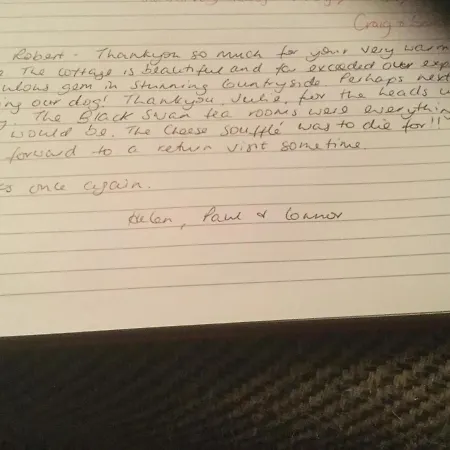 Craig n
Robert - Thankyou so much for your very warm
The cottage is beautiful and far exceeded our exp
gem in stunning countryside. Perhaps next
our dog! Thankyou, Julie, for the heads u
The Black Swan tea rooms were everythin
would be. The cheese soufflé was to die for!!
forward to a return visit sometime.
once again.
Helen, Paul & Connor